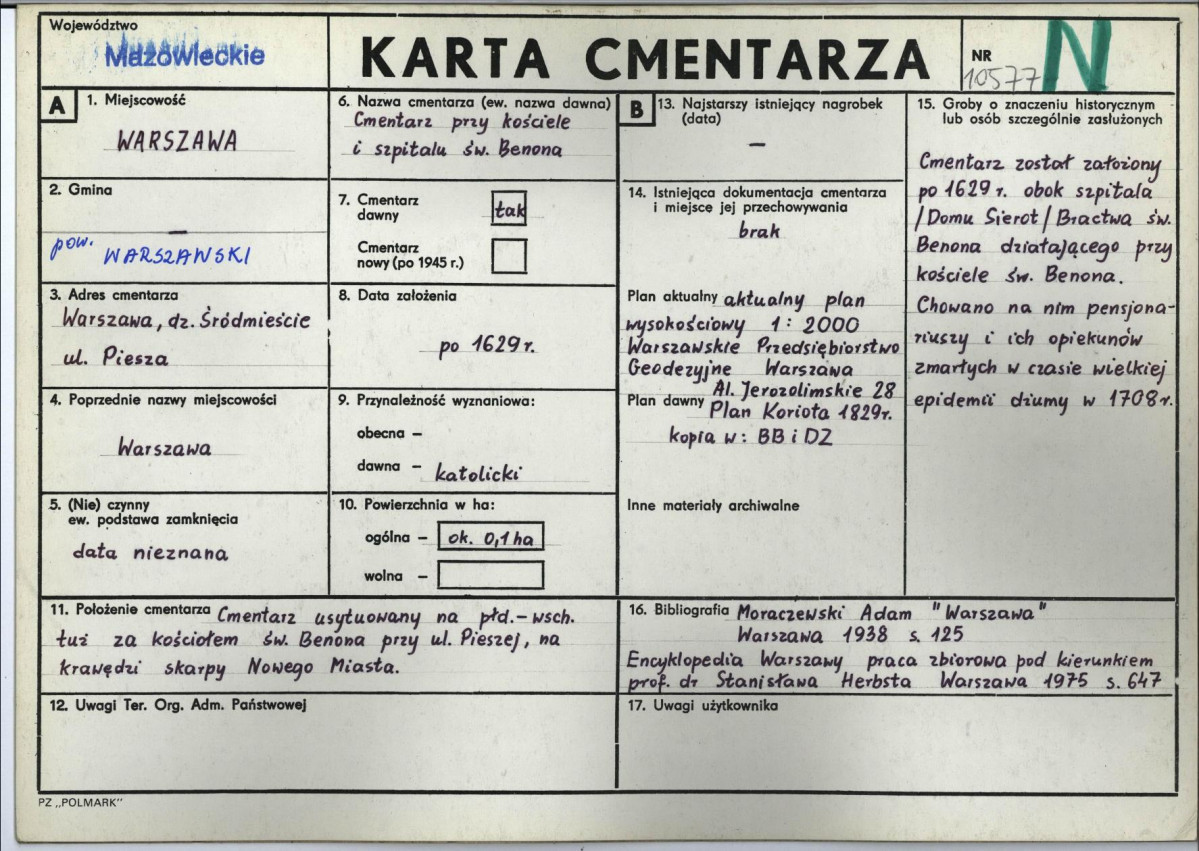 Województwo
Mazowieckie
KARTA CMENTARZA
NR
10577
N
A
1. Miejscowość
WARSZAWA
2. Gmina
—
pow. WARSZAWSKI
3. Adres cmentarza
Warszawa, dz. Śródmieście
ul. Piesza
4. Poprzednie nazwy miejscowości
Warszawa
5. (Nie) czynny
ew. podstawa zamknięcia
data nieznana
6. Nazwa cmentarza (ew. nazwa dawna)
Cmentarz przy kościele
i szpitalu św. Benona
7. Cmentarz
dawny
tak
Cmentarz
nowy (po 1945 r.)
8. Data założenia
po 1629 r.
9. Przynależność wyznaniowa:
obecna —
dawna — katolicki
10. Powierzchnia w ha:
ogólna — ok. 0,1 ha
wolna —
B
13. Najstarszy istniejący nagrobek
(data)
—
14. Istniejąca dokumentacja cmentarza
i miejsce jej przechowywania
brak
Plan aktualny aktualny plan
wysokościowy 1 : 2000
Warszawskie Przedsiębiorstwo
Geodezyjne Warszawa
Al. Jerozolimskie 28
Plan dawny Plan Koriota 1829r.
kopia w: BB i DZ
Inne materiały archiwalne
15. Groby o znaczeniu historycznym
lub osób szczególnie zasłużonych
Cmentarz został założony
po 1629 r. obok szpitala
/Domu Sierot/Bractwa św.
Benona działającego przy
kościele św. Benona.
Chowano na nim pensjona-
riuszy i ich opiekunów
zmarłych w czasie wielkiej
epidemii dżumy w 1708r.
11. Położenie cmentarza Cmentarz usytuowany na płd.-wsch.
tuż za kościołem św. Benona przy ul. Pieszej, na
krawędzi skarpy Nowego Miasta.
16. Bibliografia Moraczewski Adam "Warszawa"
Warszawa 1938 s. 125
Encyklopedia Warszawy praca zbiorowa pod kierunkiem
prof. dr Stanisława Herbsta Warszawa 1975 s. 647
12. Uwagi Ter. Org. Adm. Państwowej
17. Uwagi użytkownika
PZ „POLMARK”